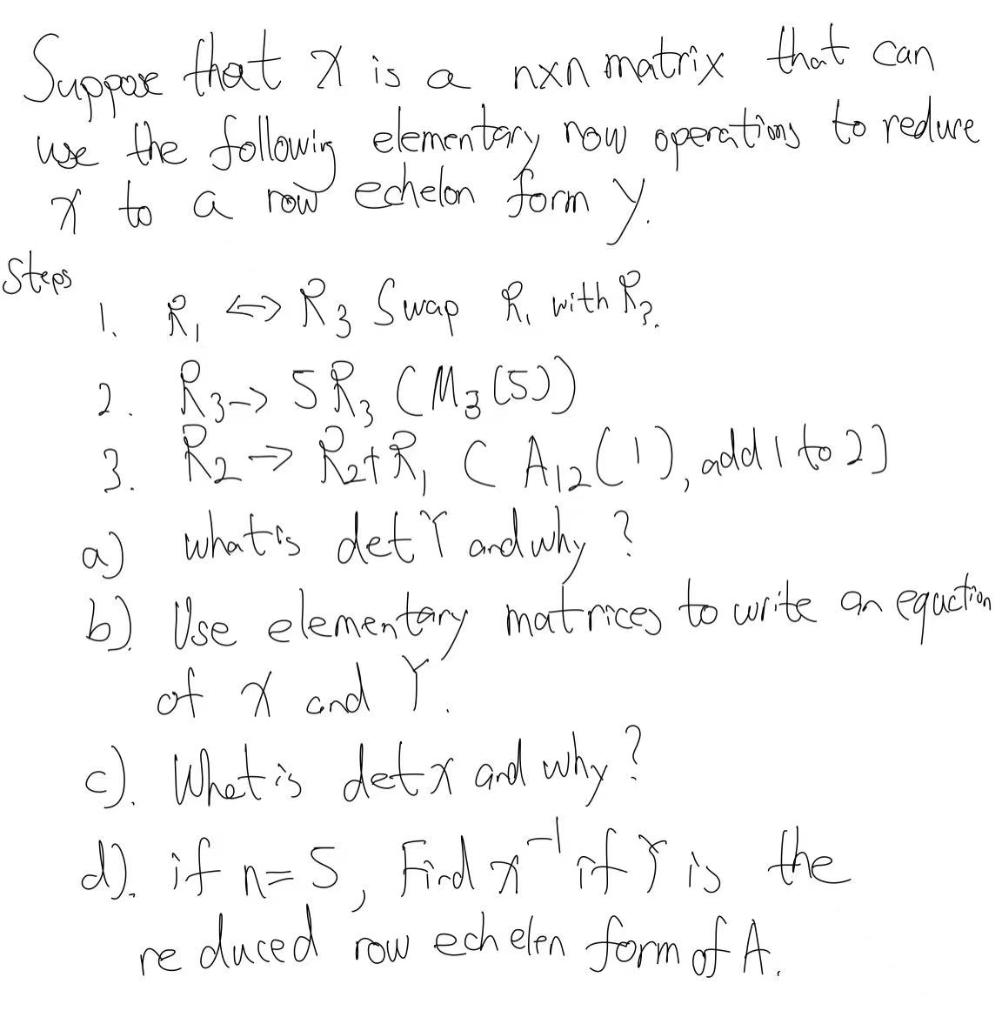 Suppose that x is a nxn matrix that can
use the following elementary row operations to reduce
x to a row echelon form y.
Steps
1. R₁ <-> R₃ Swap R₁ with R₃.
2. R₃-> 5R₃ (M₃(5))
3. R₂ -> R₂+R₁ (A₁₂(1), add 1 to 2)
a) what is det Y and why?
b). Use elementary matrices to write an equation
of x and Y.
c). What is det x and why?
d). if n=5, Find x⁻¹ if Y is the
reduced row echelon form of A.